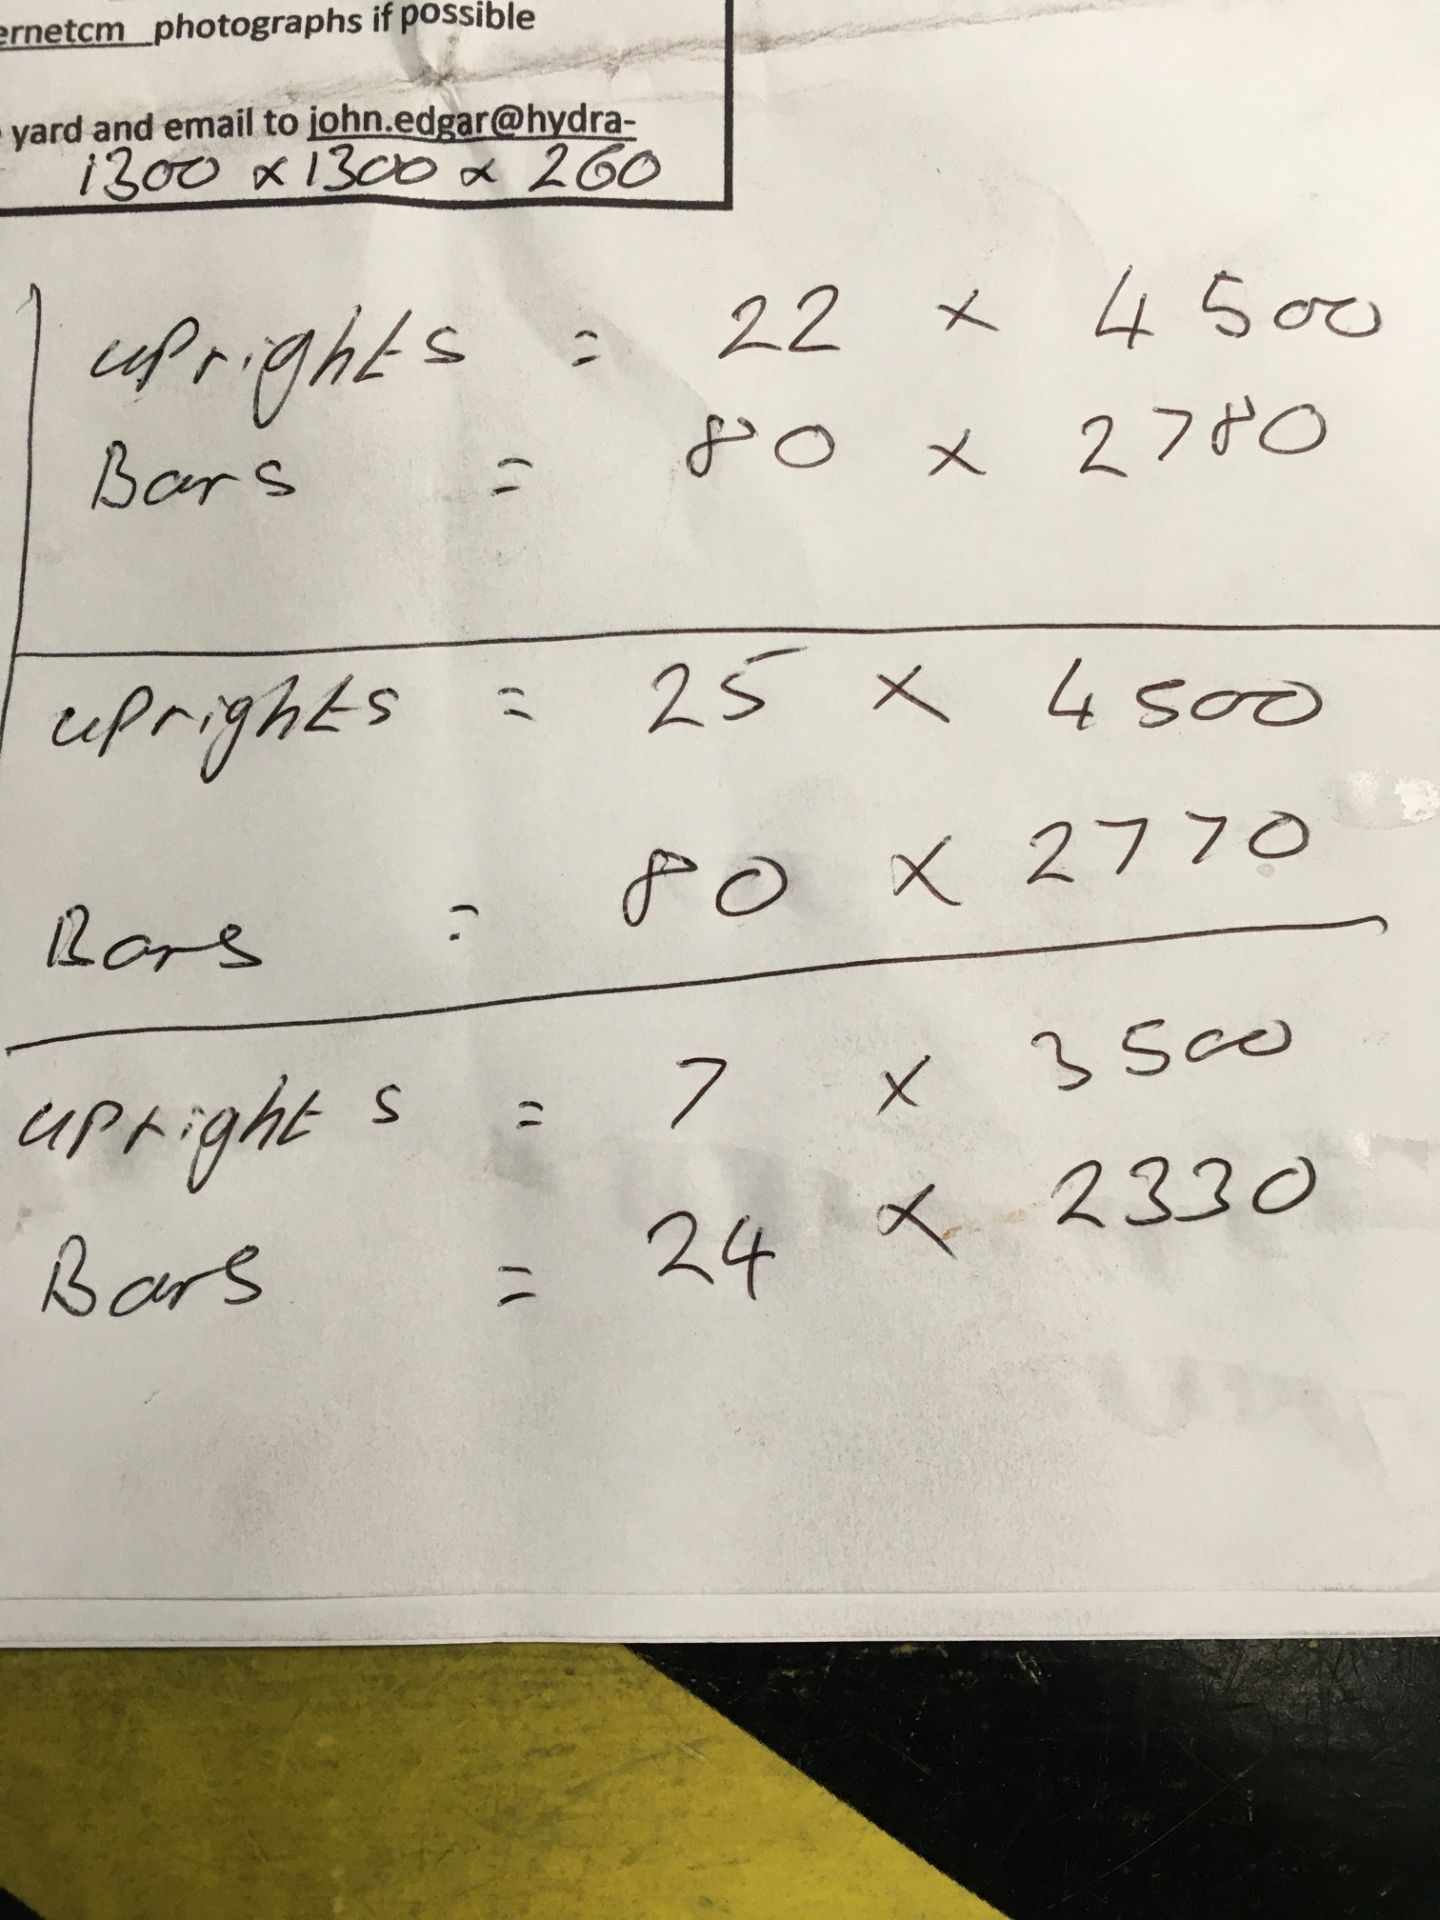 ernetcm photographs if possible
yard and email to john.edgar@hydra-
1300 x 1300 x 260
uprights = 22 x 4500
Bars = 80 x 2780
uprights = 25 x 4500
Bars = 80 x 2770
uprights = 7 x 3500
Bars = 24 x 2330